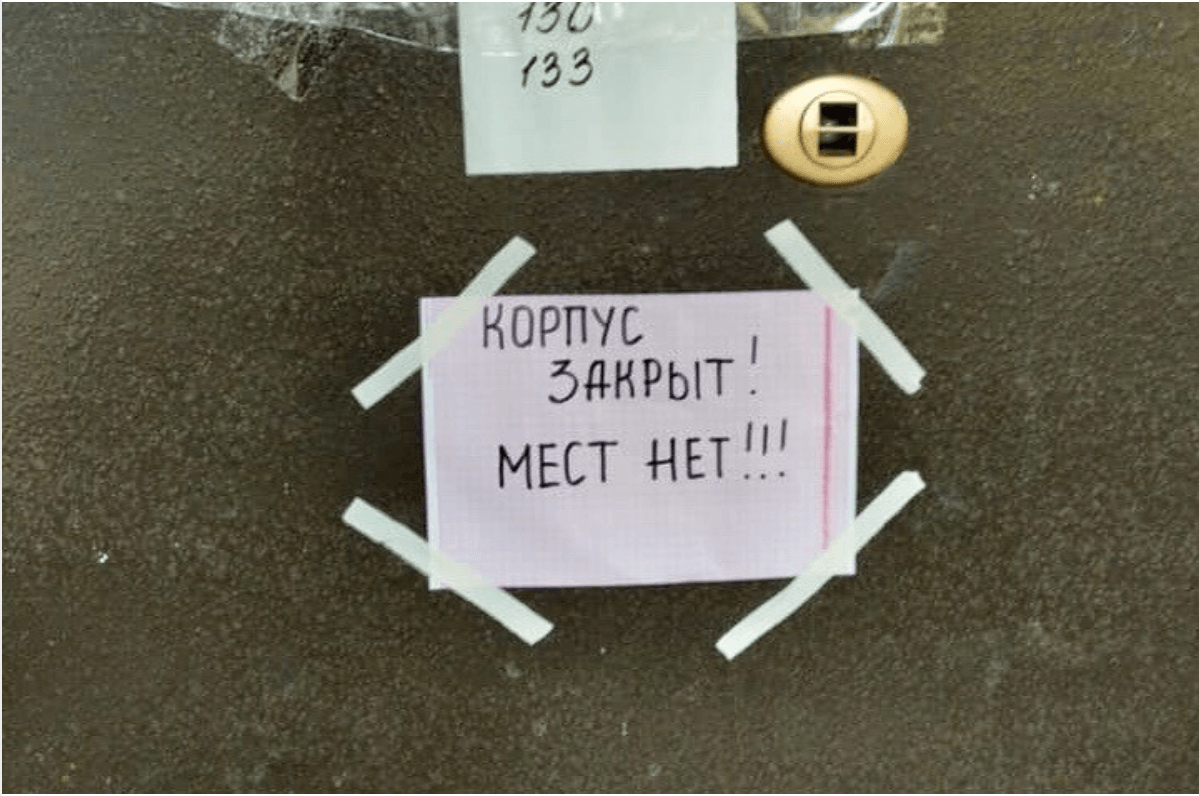 130
133
КОРПУС
ЗАКРЫТ!
МЕСТ НЕТ!!!